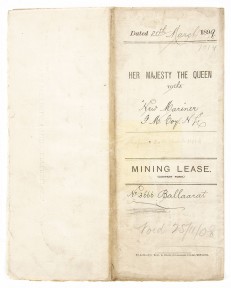 Dated 20th March
HER MAJESTY THE QUEEN
with
New Mariner
G. M. Coy. N. L.
MINING LEASE.
No 3666 Ballaarat
Void 25/11/03